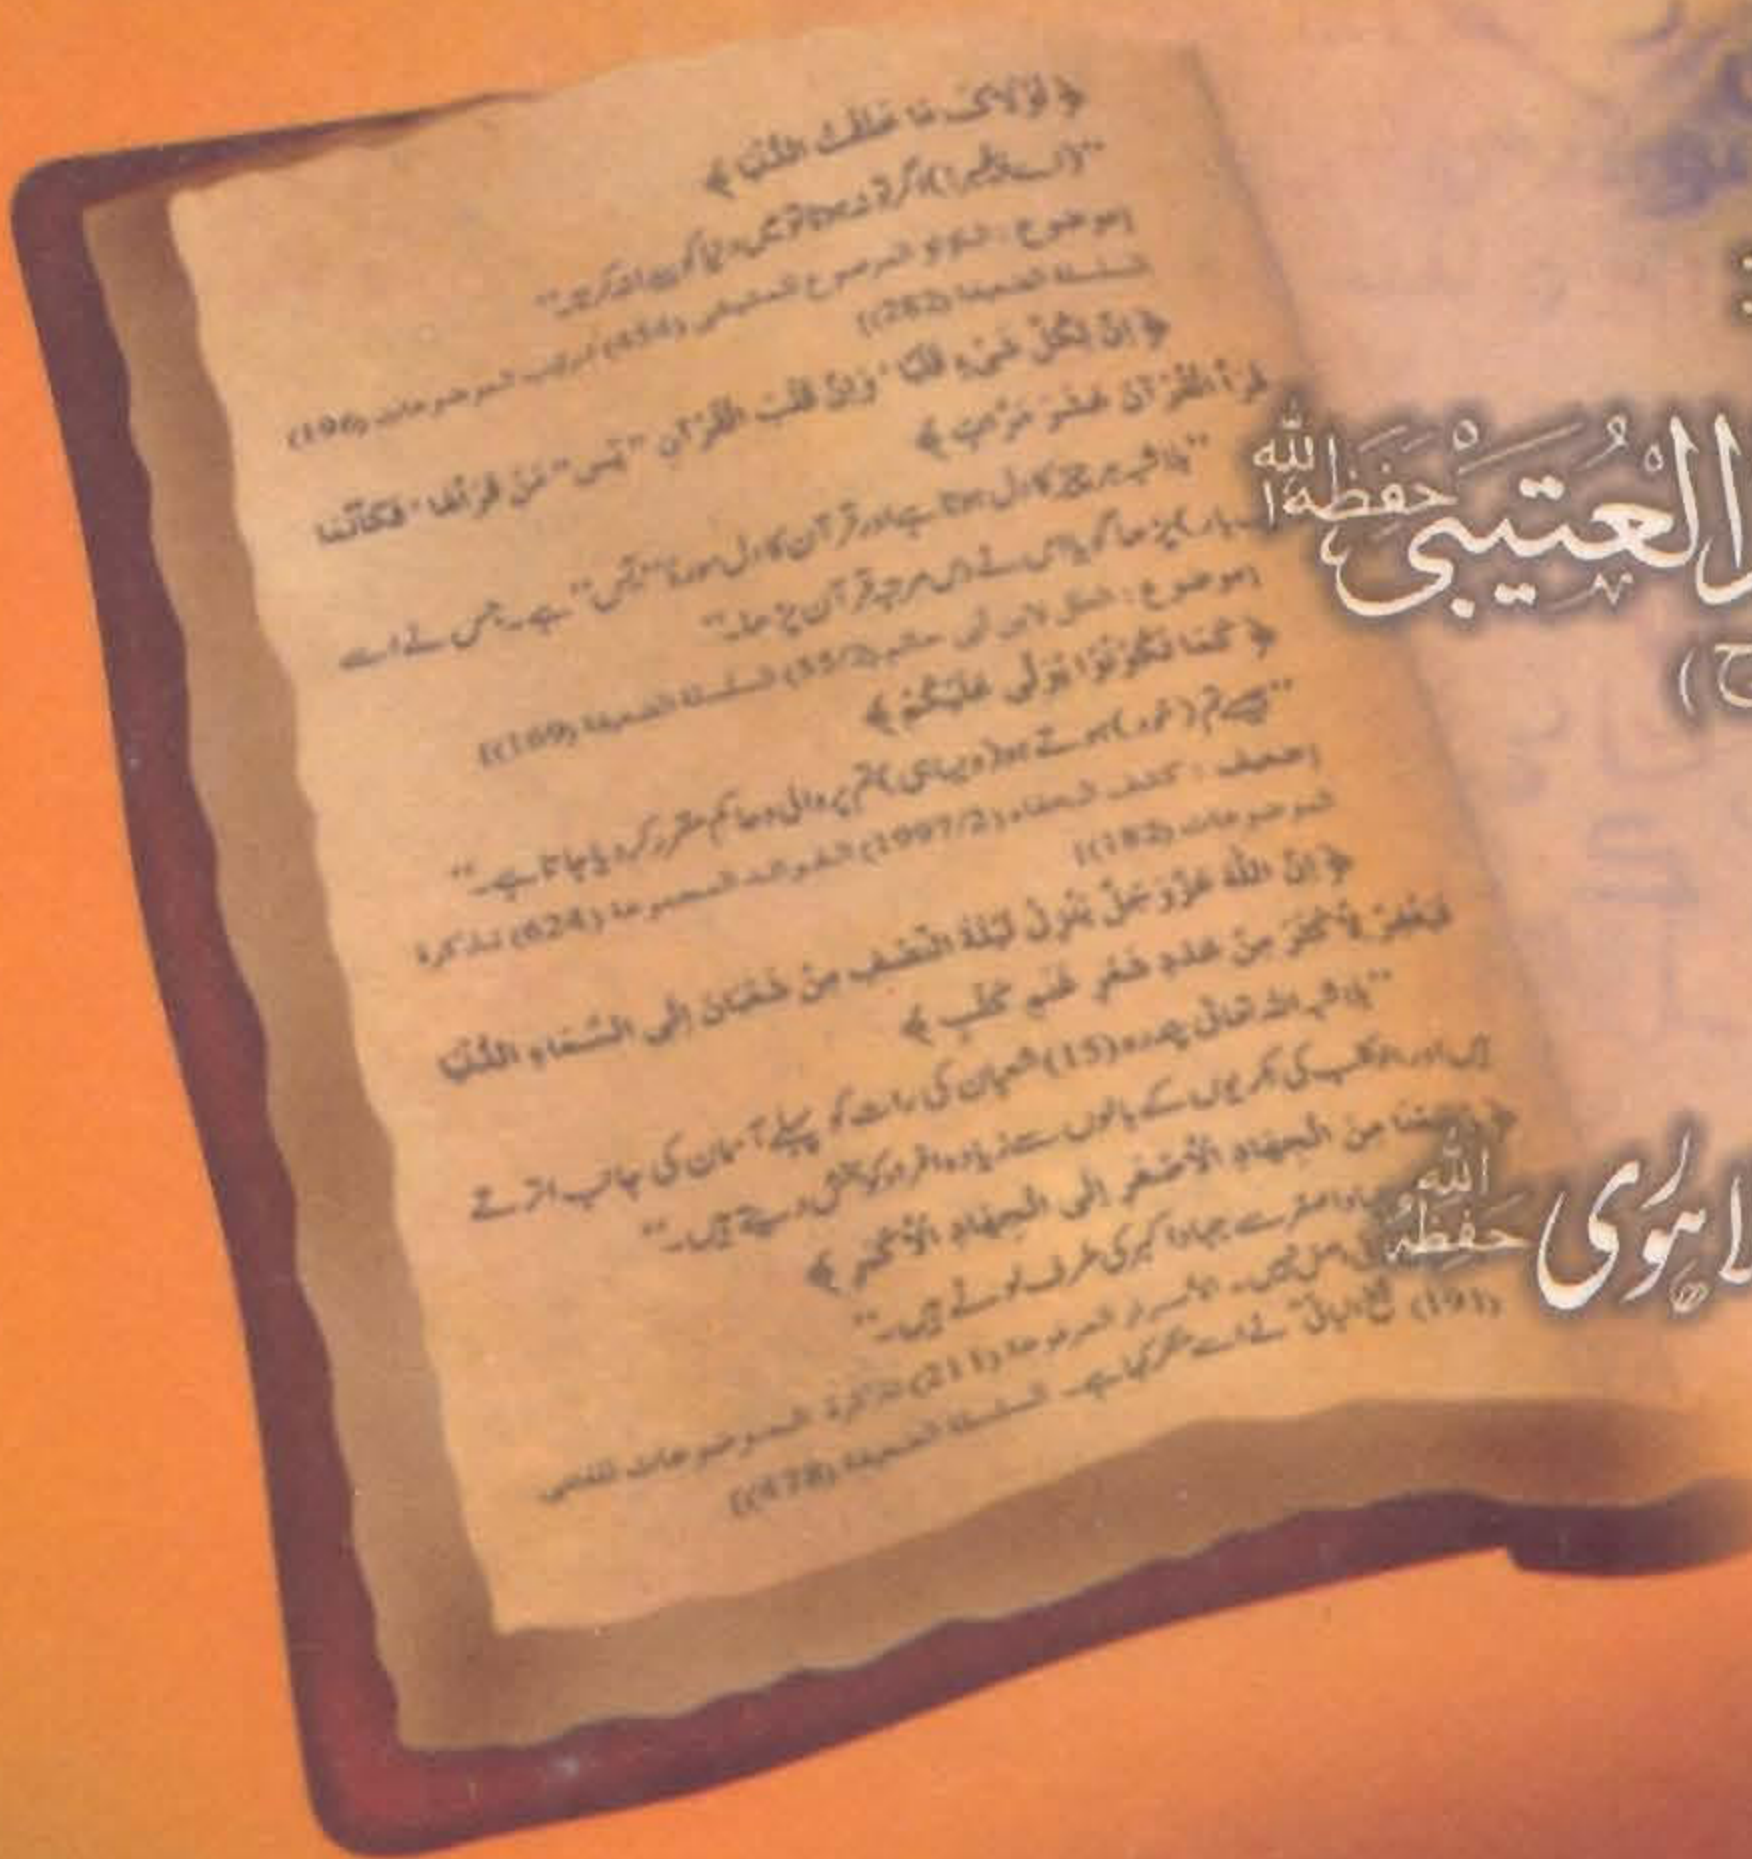 ﴿ لَوْلَاکَ مَا خَلَقْتُ الدُّنْيَا ﴾
"(اے پیغمبر!) اگر تو نہ ہوتا تو میں دنیا کو پیدا نہ کرتا۔"
[موضوع : اللؤلؤ المرصوع للمشيشي (454) ترتيب الموضوعات (196)
السلسلة الضعيفة (282)]
﴿ إِنَّ لِكُلِّ شَيْءٍ قَلْبًا ' وَإِنَّ قَلْبَ الْقُرْآنِ "يٰس" مَنْ قَرَأَهَا ' فَكَأَنَّمَا
قَرَأَ الْقُرْآنَ عَشْرَ مَرَّاتٍ ﴾
"بلاشبہ ہر چیز کا دل ہوتا ہے اور قرآن کا دل سورۂ "یٰس" ہے۔ جس نے اسے
بار) پڑھا گویا اس نے دس مرتبہ قرآن پڑھا۔"
[موضوع : العلل لابن أبي حاتم (55/2) السلسلة الضعيفة (169)]
﴿ كَمَا تَكُوْنُوْا يُوَلّٰى عَلَيْكُمْ ﴾
"جیسے تم (خود) ہوتے ہو (ویسا ہی) تم پر والی و حاکم مقرر کر دیا جاتا ہے۔"
[ضعيف : كشف الخفاء (1997/2) الفوائد المجموعة (624) تذكرة
الموضوعات (182)]
﴿ إِنَّ اللّٰهَ عَزَّوَجَلَّ يَنْزِلُ لَيْلَةَ النِّصْفِ مِنْ شَعْبَانَ إِلَى السَّمَاءِ الدُّنْيَا
فَيَغْفِرُ لِأَكْثَرَ مِنْ عَدَدِ شَعْرِ غَنَمِ كَلْبٍ ﴾
"بلاشبہ اللہ تعالیٰ پندرہ (15) شعبان کی رات کو پہلے آسمان کی جانب اترتے
ہیں اور بنوکلب کی بکریوں کے بالوں سے زیادہ افراد کو بخش دیتے ہیں۔"
مِنَ الْجِهَادِ الْأَصْغَرِ إِلَى الْجِهَادِ الْأَكْبَرِ ﴾
اصغر سے جہاد اکبر کی طرف لوٹے ہیں۔"
اصل نہیں۔ الأسرار المرفوعة (211) تذكرة الموضوعات للفتني
(191) شیخ البانی" نے اسے منکر کہا ہے۔ السلسلة الضعيفة (478)]
العُتَيْبِي حَفِظَهُ اللّٰه
ح )
لاہوری حَفِظَهُ اللّٰه